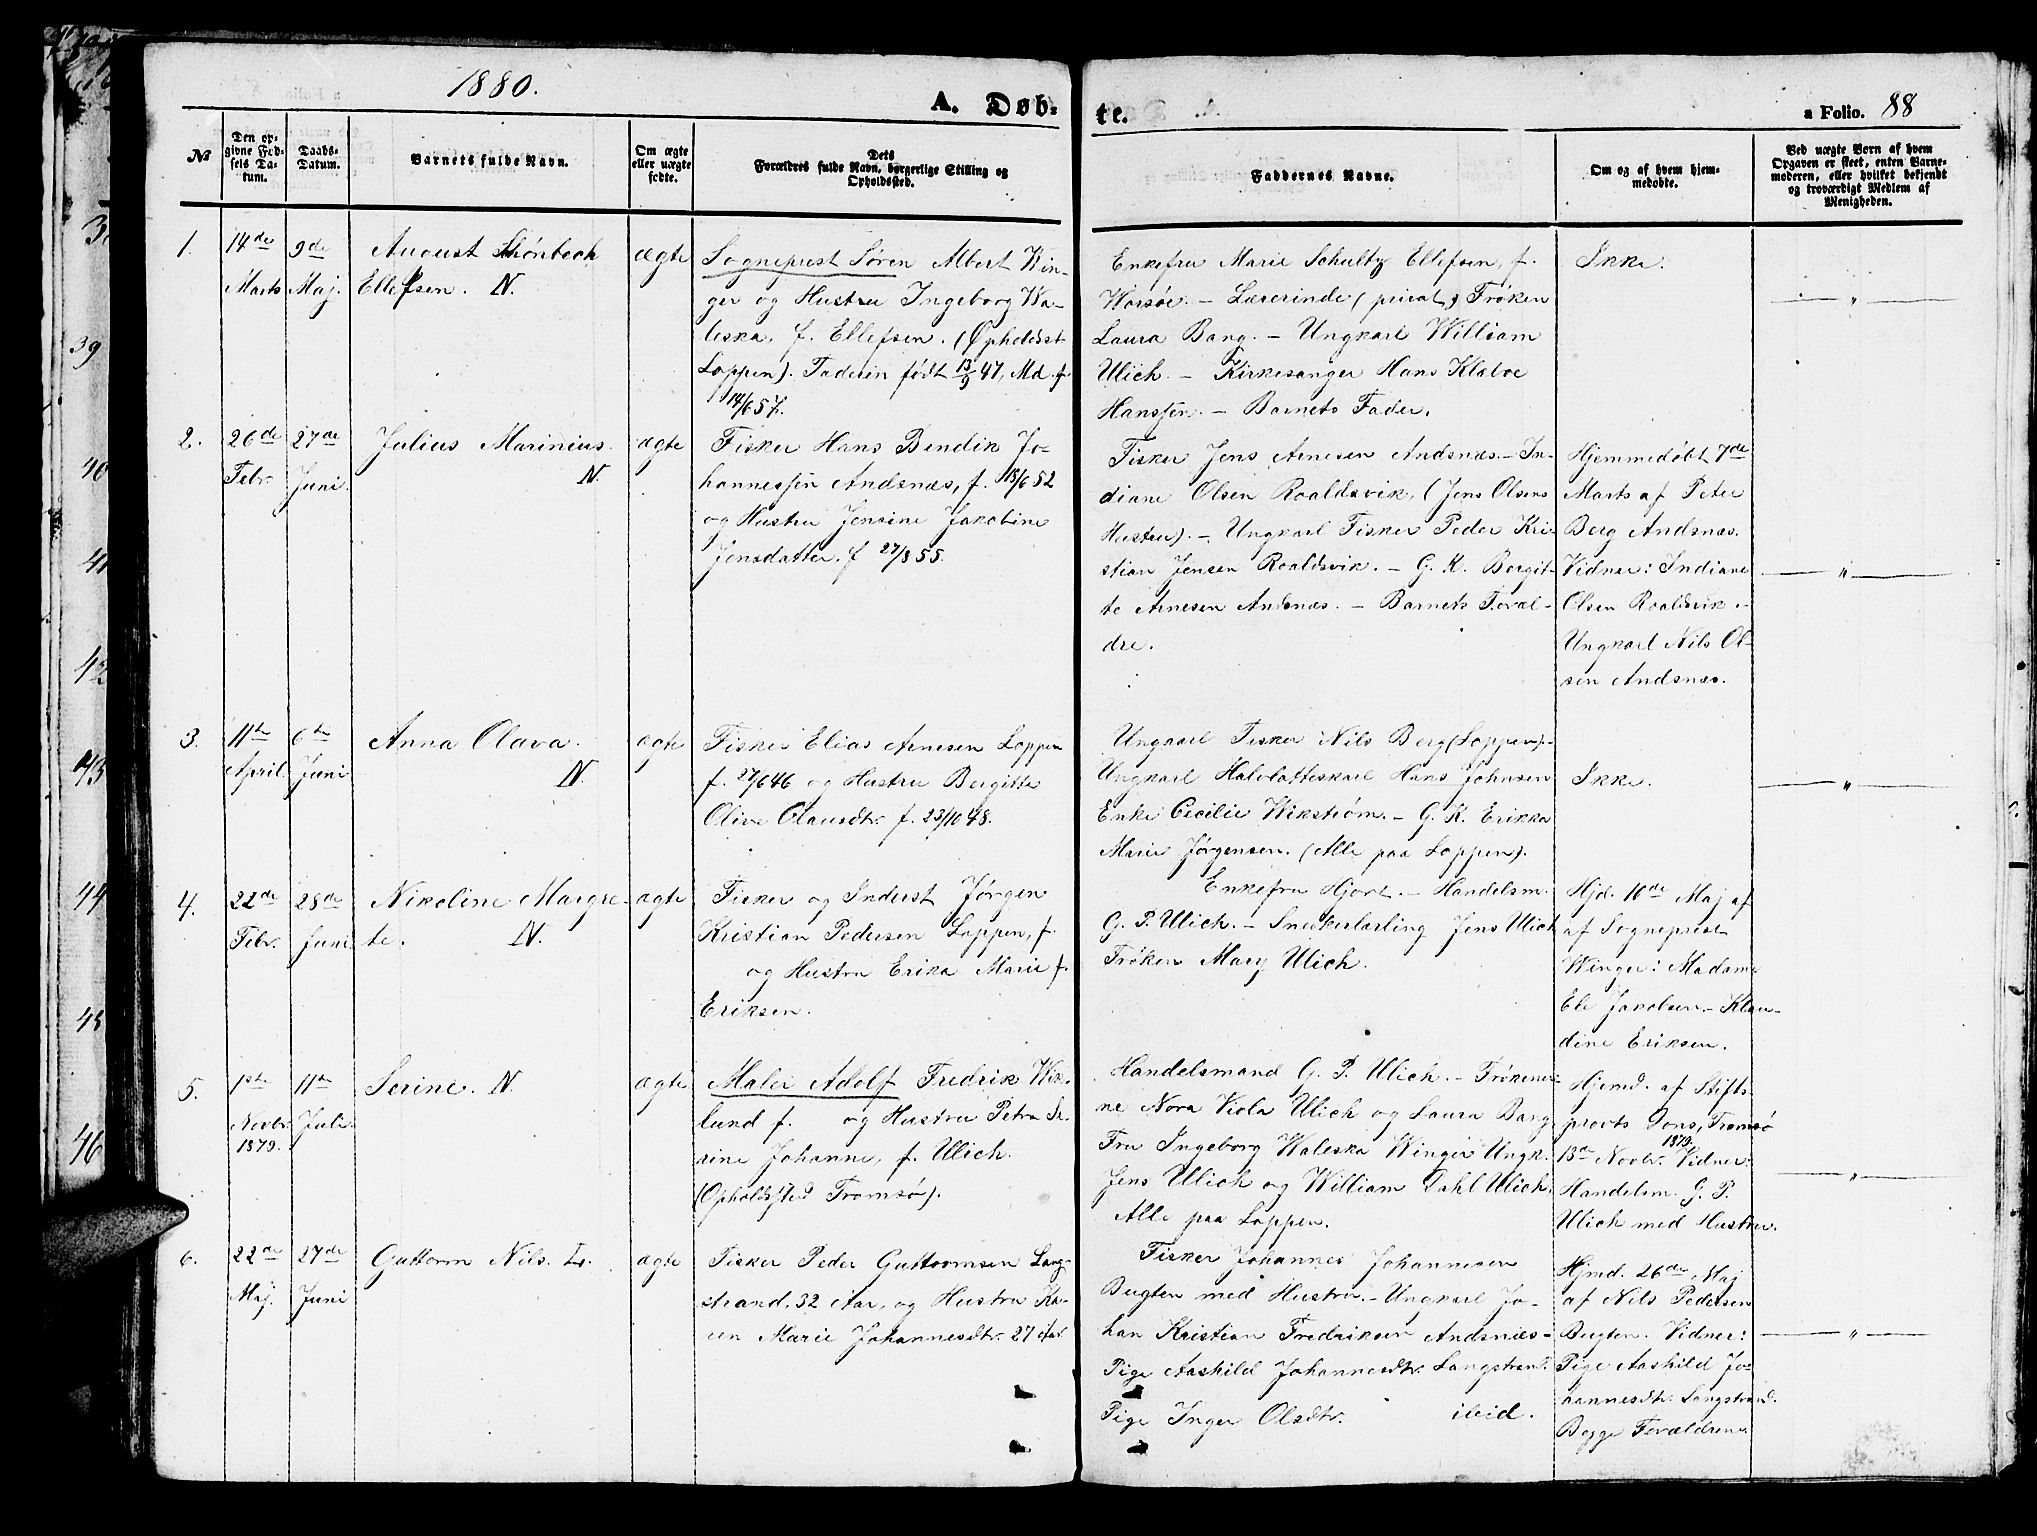 1880.
A. Døb-
te.
a Folio. 88
No
Den op-
givne Fød-
sels Da-
tum.
Daabs-
Datum.
Barnets fulde Navn.
Om ægte
eller uægte
fødte.
Dets
Forældres fulde Navn, borgerlige Stilling og
Opholdssted.
Faddernes Navne.
Om og af hvem hjem-
medøbte.
Ved uægte Børn af hvem
Opgaven er skeet, enten Barne-
moderen, eller hvilket bekjendt
og troværdigt Medlem af
Menigheden.
1.
14de
Marts
9de
Maj.
August Schønbech
Ellefsen. N.
ægte
Sognepræst Søren Albert Win-
ger og Hustru Ingeborg Wa-
leska, f. Ellefsen. (Opholdsst
Loppen). Faderen født 13/9 47, Md. f.
14/6 57.
Enkefru Marie Schultz Ellefsen, f.
Worsøe. - Lærerinde (privat) Frøken
Laura Bang. - Ungkarl William
Ulich. - Kirkesanger Hans Klaboe
Hanssen. - Barnets Fader.
Ikke.
"
2.
26de
Febr.
27de
Juni.
Julius Marinius.
N.
ægte
Fisker Hans Bendik Jo-
hannessen Andsnæs, f. 18/6 52
og Hustru Jensine Jakobine
Jensdatter. f 27/8 55.
Fisker Jens Arnesen Andsnæs. - In-
diane Olsen Roaldsvik, (Jens Olsens
Hustru). - Ungkarl Fisker Peder Kri-
stian Jensen Roaldsvik. - G. K. Bergit-
te Arnesen Andsnæs. - Barnets Foræl-
dre.
Hjemmedøbt 7de
Marts af Peter
Berg Andsnæs.
Vidner: Indiane
Olsen Roaldsvik. -
Ungkarl Nils Ol-
sen Andsnæs.
"
3.
11te
April
6te
Juni
Anna Olava.
N.
ægte
Fisker Elias Arnesen Loppen
f. 27/6 46 og Hustru Bergitte
Olive Olausdtr. f. 23/10 48.
Ungkarl Fisker Nils Berg (Loppen). -
Ungkarl Halvlotteskarl Hans Johnsen
Enke Cecilie Wikstrøm. - G. K. Erikka
Marie Jørgensen. (Alle paa Loppen).
Ikke.
"
4.
22de
Febr.
28de
Juni
Nikoline Margre-
te. N.
ægte
Fisker og Inderst Jørgen
Kristian Pedersen Loppen, f.
og Hustru Erika Marie f.
Eriksen.
Enkefru Hjort. - Handelsm.
G. P. Ulich. - Snekerlærling Jens Ulich
Frøken Mary Ulich.
Hjd. 10de Maj af
af Sognepræst
Winger: Madame
Ele Jakobsen. - Klau-
dine Eriksen.
5.
1ste
Novbr.
1879.
11te
Juli
Serine. N.
ægte
Maler Adolf Fredrik Wik-
lund f. og Hustru Petra Se-
rine Johanne, f. Ulich.
(Opholdssted Tromsø).
Handelsmand G. P. Ulich. - Frøkener-
ne Nora Viola Ulich og Laura Bang
Fru Ingeborg Waleska Winger Ungk.
Jens Ulich og William Dahl Ulich.
Alle paa Loppen.
Hjemd. af Stifts-
provst Dons, Tromsø
13de Novbr. 1879. Vidner:
Handelsm. G. P.
Ulich med Hustru.
"
6.
22de
Maj.
27de
Juni
Guttorm Nils. L.
ægte
Fisker Peder Guttormsen Lang-
strand, 32 Aar, og Hustru Ka-
ren Marie Johannesdtr. 27 Aar.
Fisker Johannes Johannesen
Bugten med Hustru. - Ungkarl Jo-
han Kristian Fredriksen Andsnæs -
Pige Aashild Johannesdtr. Langstrand.
Pige Inger Olsdtr. ibid.
Hjmd. 26de Maj
af Nils Pedersen
Bugten. Vidner:
Pige Aashild Jo-
hannesdtr. Langstrand.
Begge Forældrene.
"
39
40
41
42
43
44
45
46